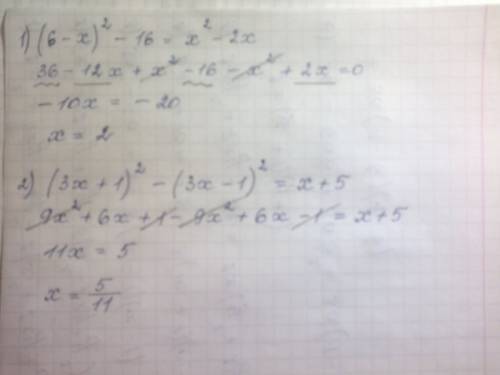 1) (6-x)² - 16 = x² - 2x
36 - 12x + x² - 16 - x² + 2x = 0
-10x = -20
x = 2
2) (3x+1)² - (3x-1)² = x+5
9x² + 6x + 1 - 9x² + 6x - 1 = x+5
11x = 5
x = 5/11